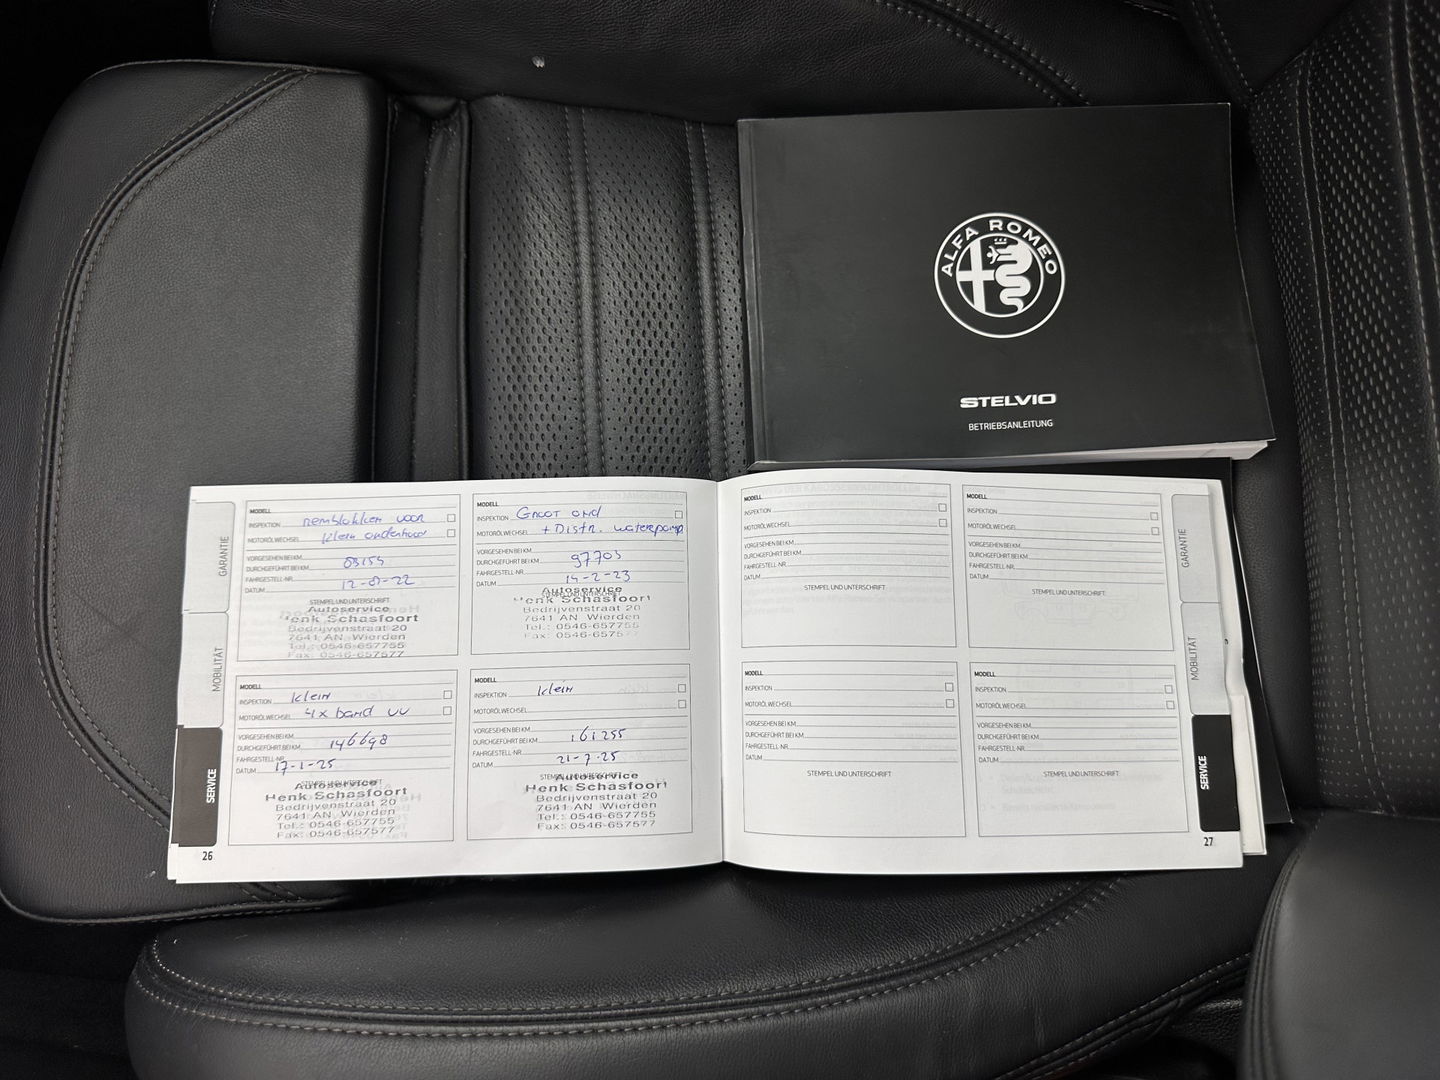 ALFA ROMEO
STELVIO
BETRIEBSANLEITUNG
GARANTIE
MOBILITÄT
SERVICE
MODELL
INSPEKTION remblokken voor
MOTORÖLWECHSEL klein onderhoud
VORGESEHEN BEI KM
DURCHGEFÜHRT BEI KM
FAHRGESTELL-NR.
DATUM
STEMPEL UND UNTERSCHRIFT
Autoservice
Henk Schasfoort
Bedrijvenstraat 20
7641 AN Wierden
Tel.: 0546-657755
Fax: 0546-657577
MODELL
INSPEKTION Groot ond
MOTORÖLWECHSEL + Distr. waterpomp
VORGESEHEN BEI KM
DURCHGEFÜHRT BEI KM 97703
FAHRGESTELL-NR.
DATUM 14-2-23
Autoservice
Henk Schasfoort
Bedrijvenstraat 20
7641 AN Wierden
Tel.: 0546-657755
Fax: 0546-6575
MODELL
INSPEKTION klein
MOTORÖLWECHSEL 4x band vv
VORGESEHEN BEI KM
DURCHGEFÜHRT BEI KM 146698
FAHRGESTELL-NR.
DATUM 17-1-25
STEMPEL UND UNTERSCHRIFT
Autoservice
Henk Schasfoort
Bedrijvenstraat 20
7641 AN Wierden
Tel.: 0546-657755
Fax: 0546-657577
26
MODELL
INSPEKTION klein
MOTORÖLWECHSEL
VORGESEHEN BEI KM
DURCHGEFÜHRT BEI KM 161255
FAHRGESTELL-NR.
DATUM 21-7-25
STEMPEL UND UNTERSCHRIFT
Autoservice
Henk Schasfoort
Bedrijvenstraat 20
7641 AN Wierden
Tel.: 0546-657755
Fax: 0546-657577
MODELL
INSPEKTION
MOTORÖLWECHSEL
VORGESEHEN BEI KM
DURCHGEFÜHRT BEI KM
FAHRGESTELL-NR.
DATUM
STEMPEL UND UNTERSCHRIFT
MODELL
INSPEKTION
MOTORÖLWECHSEL
VORGESEHEN BEI KM
DURCHGEFÜHRT BEI KM
FAHRGESTELL-NR.
DATUM
STEMPEL UND UNTERSCHRIFT
MODELL
INSPEKTION
MOTORÖLWECHSEL
VORGESEHEN BEI KM
DURCHGEFÜHRT BEI KM
FAHRGESTELL-NR.
DATUM
STEMPEL UND UNTERSCHRIFT
MODELL
INSPEKTION
MOTORÖLWECHSEL
VORGESEHEN BEI KM
DURCHGEFÜHRT BEI KM
FAHRGESTELL-NR.
DATUM
STEMPEL UND UNTERSCHRIFT
GARANTIE
MOBILITÄT
SERVICE
27